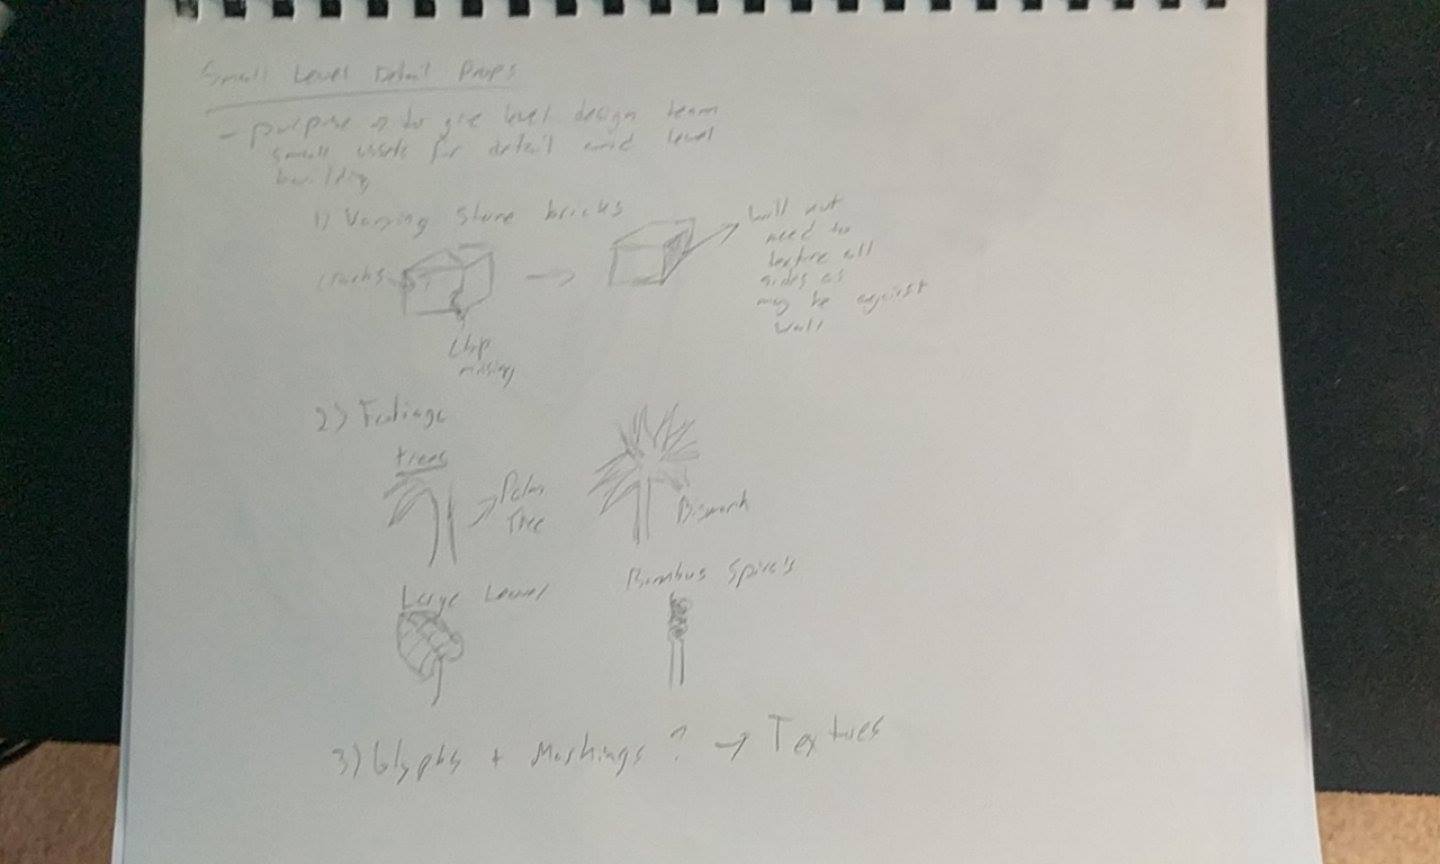 Small Level Detail Props
- purpose is to give level design team
small assets for detail and level
building
1) Varying Stone bricks
cracks
Chip
missing
will not
need to
texture all
sides as
may be against
wall
2) Foliage
trees
Palm
Tree
Bismark
Large Leaves
3) Glyphs + Markings ? → Textures